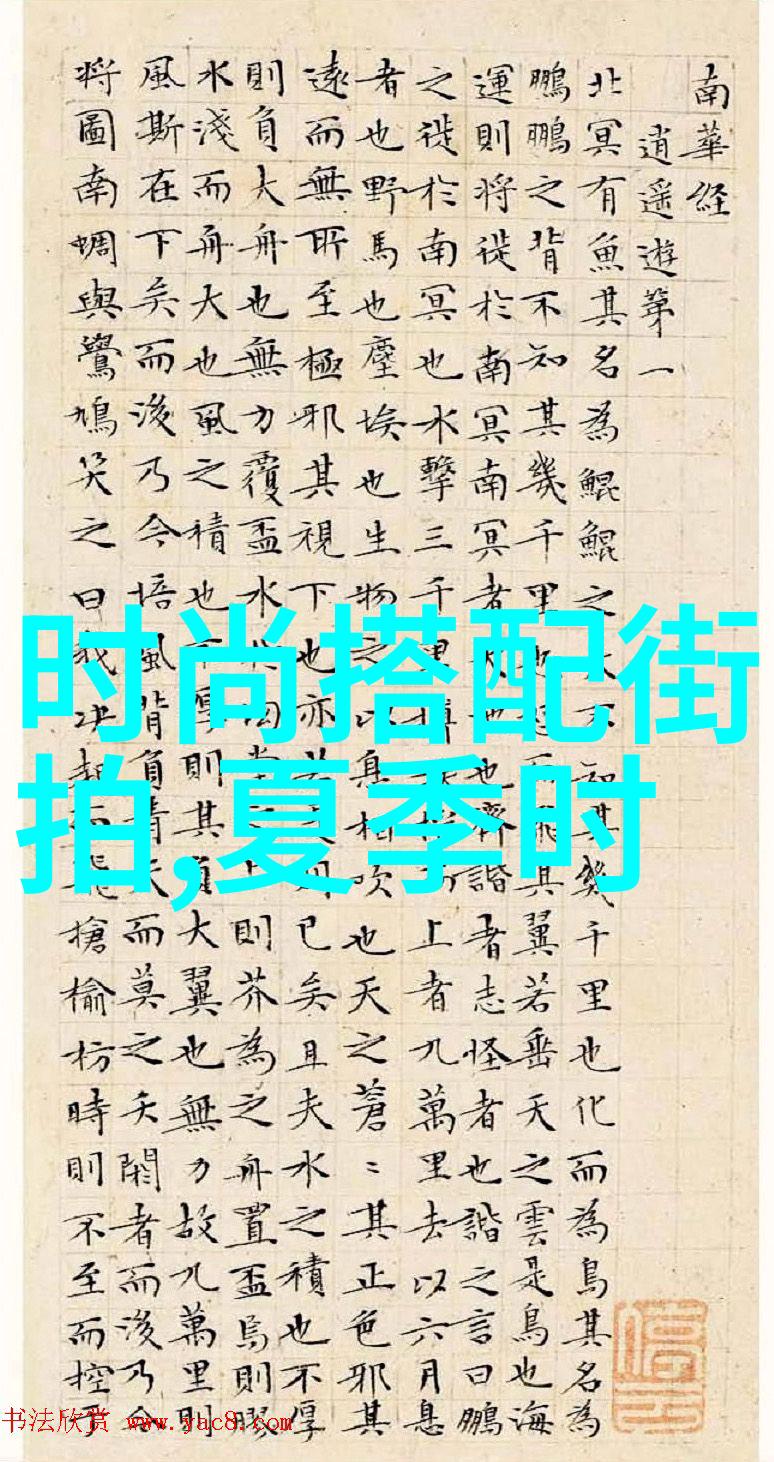 南華経
逍遥遊第一
北冥有魚其名為鯤鯤之不知其幾千里也化而為鳥其名為
鵬鵬之背不知其幾千里也飛其翼若垂天之雲是鳥也海
運則将徙於南冥南冥者也齊諧者志怪者也諧之言曰鵬
之徙於南冥也水擊三千里上者九萬里去以六月息
者也野馬也塵埃也生物之以息相吹也天之蒼〻其正色邪其
遠而無所至極邪其視下也亦則已矣且夫水之積也不厚
則負大舟也無力覆盃水上則芥為之舟置盃焉則膠
水淺而舟大也風之積也厚則其負大翼也無力故九萬里則
風斯在下矣而後乃今培風背負青天而莫之夭閼者而後乃今
将圖南蜩與鷽鳩笑之曰我决起而飛搶榆枋時則不至而控
时尚搭配街
拍,夏季时
书法欣赏 www.yac8.com